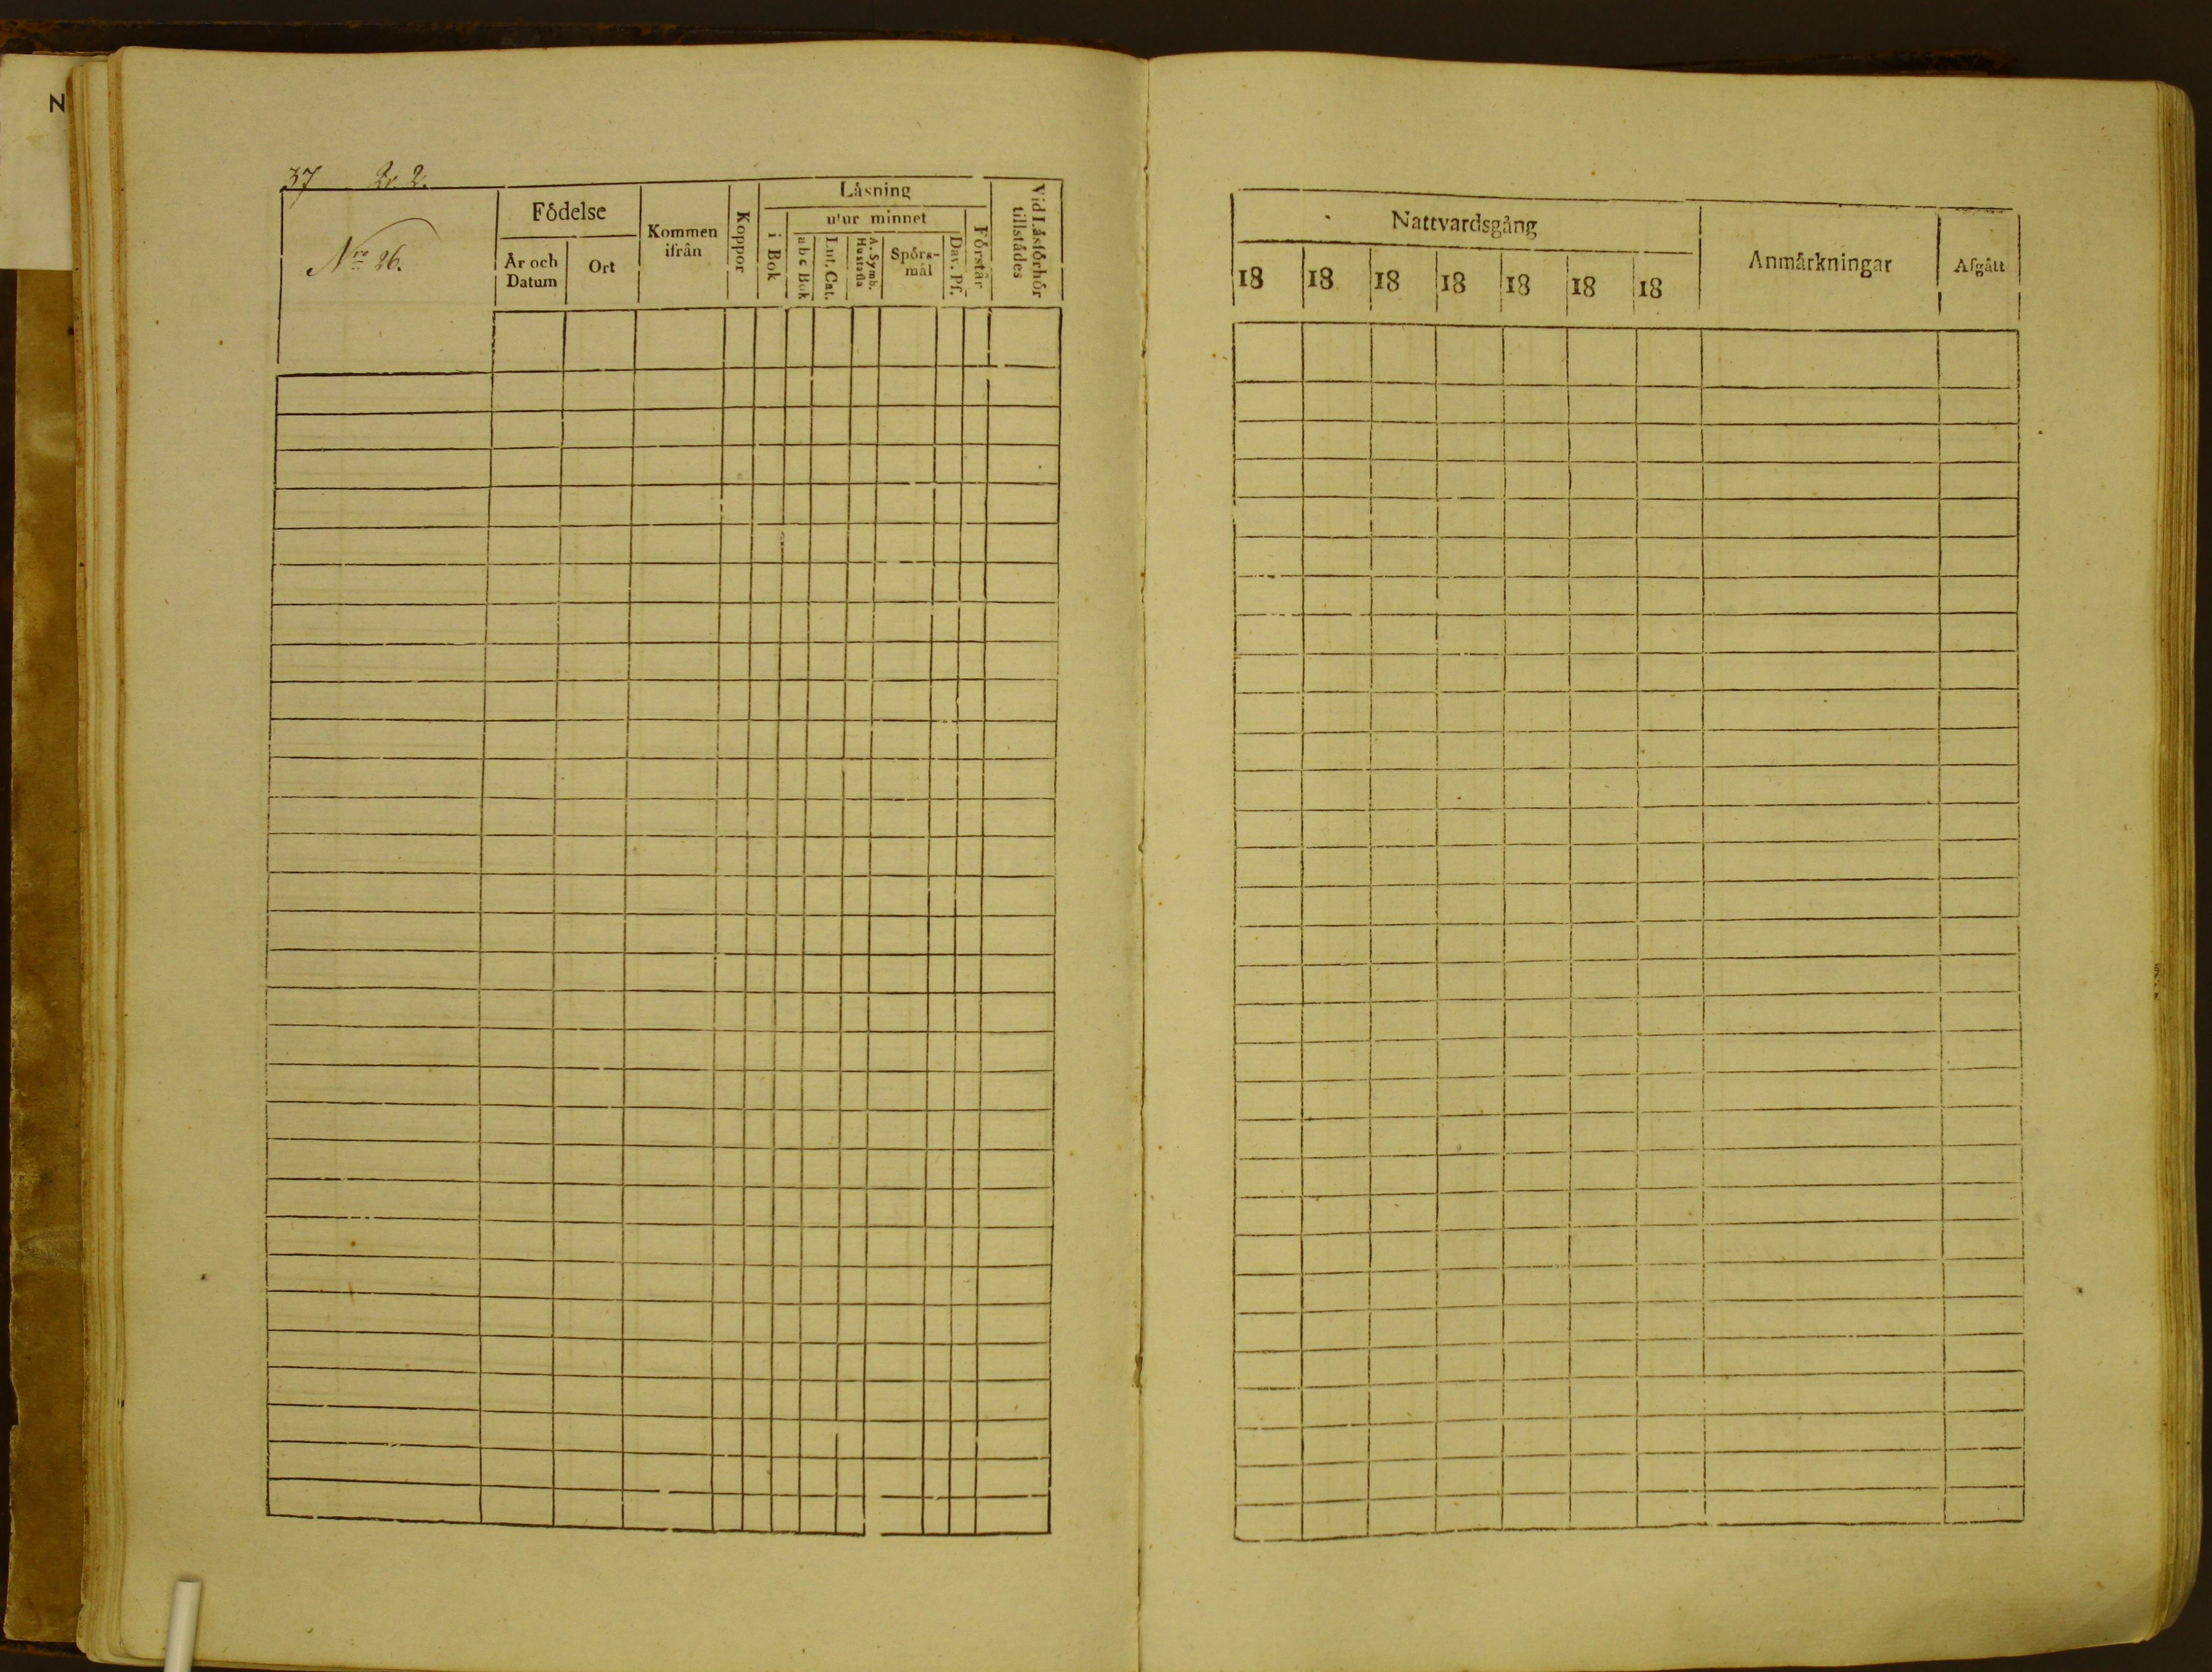 N
37 Qv. 2.
Nro 26.
Födelse
År och Datum
Ort
Kommen ifrån
Koppor
Läsning
i Bok
utur minnet
a b c Bok
Lut. Cat.
A. Symb. Hustafla
Spörs-
mål
Dav. Ps.
Förstår
Vid Läsförhör tillstädes
Nattvardsgång
18 18 18 18 18 18 18
Anmärkningar
Afgått